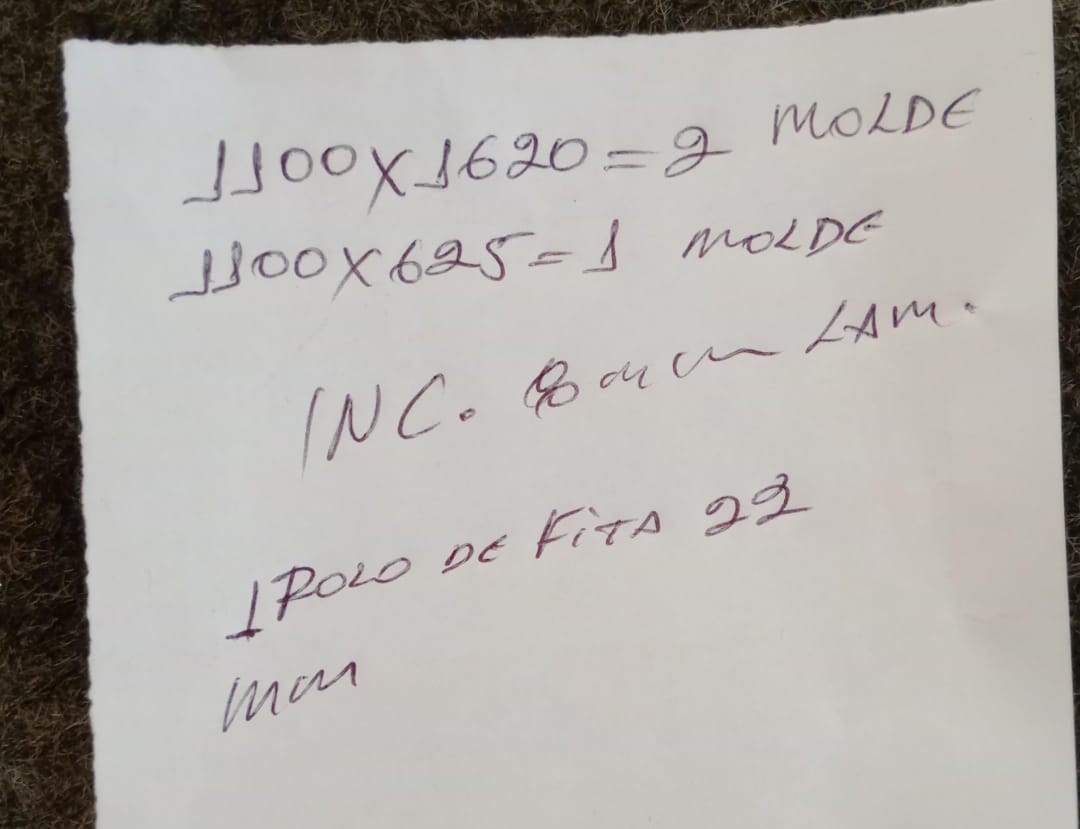 1100X1620=2 MOLDE
1100X625=1 MOLDE
INC. 8mm LAM.
1 ROLO DE FiTA 22
mm